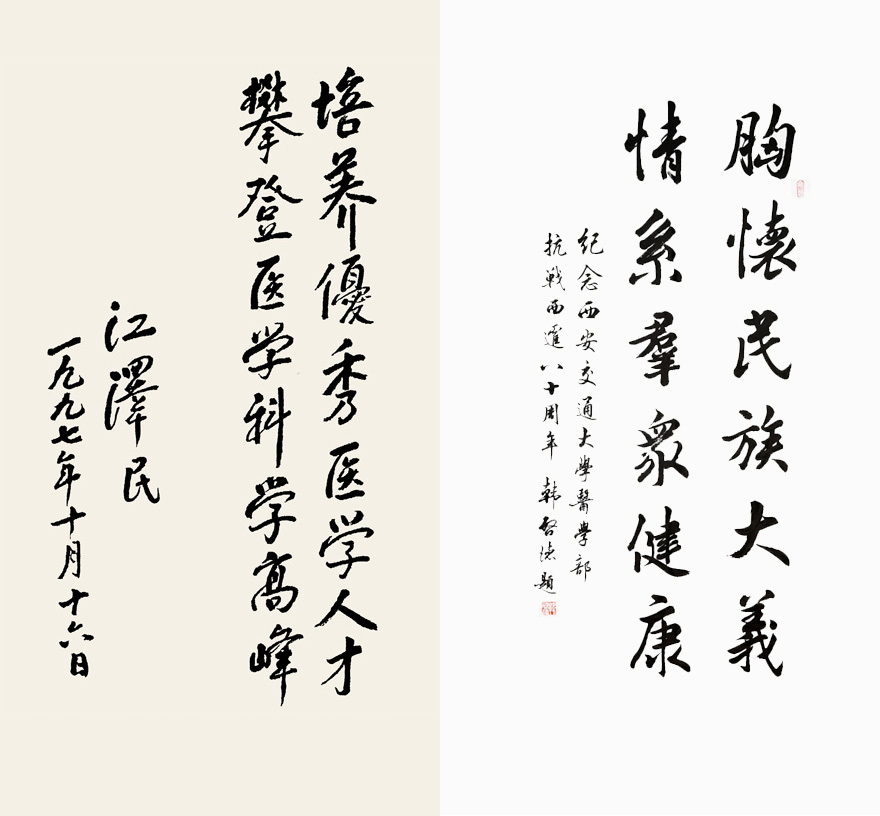 培养優秀医学人才
攀登医学科学高峰
江澤民
一九九七年十月十六日
胸懷民族大義
情系羣衆健康
纪念西安交通大學醫學部
抗戰西遷八十周年 韩啓德題